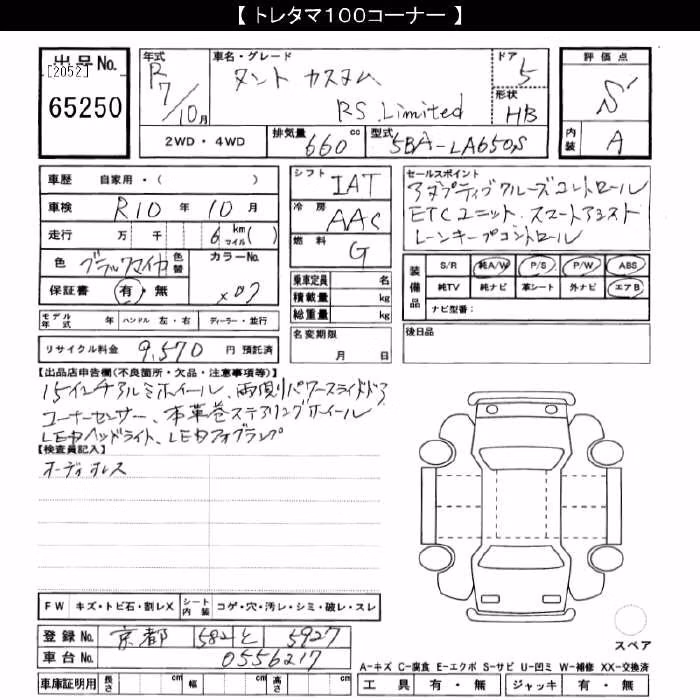 【 トレタマ100コーナー 】
出品No. 年式 車名・グレード ドア 評価点
[2052] R7/10月 タント カスタム 5 S
65250 RS Limited 形状 HB
2WD・4WD 排気量 660 cc 型式 5BA-LA650S 内装 A
車歴 自家用・( ) シフト IAT セールスポイント
車検 R10 年 10 月 冷房 AAC アダプティブクルーズコントロール
走行 万 千 6 km マイル( ) 燃料 G ETCユニット.スマートアシスト
レーンキープコントロール
色 ブラックマイカ 色替 カラーNo. X07
保証書 有・無
乗車定員 名
積載量 kg
総重量 kg
装備品 S/R 純A/W P/S P/W ABS
純TV 純ナビ 革シート 外ナビ エアB
ナビ型番:
モデル年式 年 ハンドル 左・右 ディーラー・並行
名変期限 月 日
後日品
リサイクル料金 9,570 円 預託済
【出品店申告欄(不良箇所・欠品・注意事項等)】
15インチアルミホイール、両側パワースライドドア
コーナーセンサー、本革巻ステアリングホイール
LEDヘッドライト、LEDフォグランプ
【検査員記入】
オーディオレス
FW キズ・トビ石・割レX シート内装 コゲ・穴・汚レ・シミ・破レ・スレ
登録No. 京都 582 と 5927
車台No. 0556217
スペア
A-キズ C-腐食 E-エクボ S-サビ U-凹ミ W-補修 XX-交換済
車庫証明用 長さ cm 幅 cm 高さ cm 工具 有・無 ジャッキ 有・無